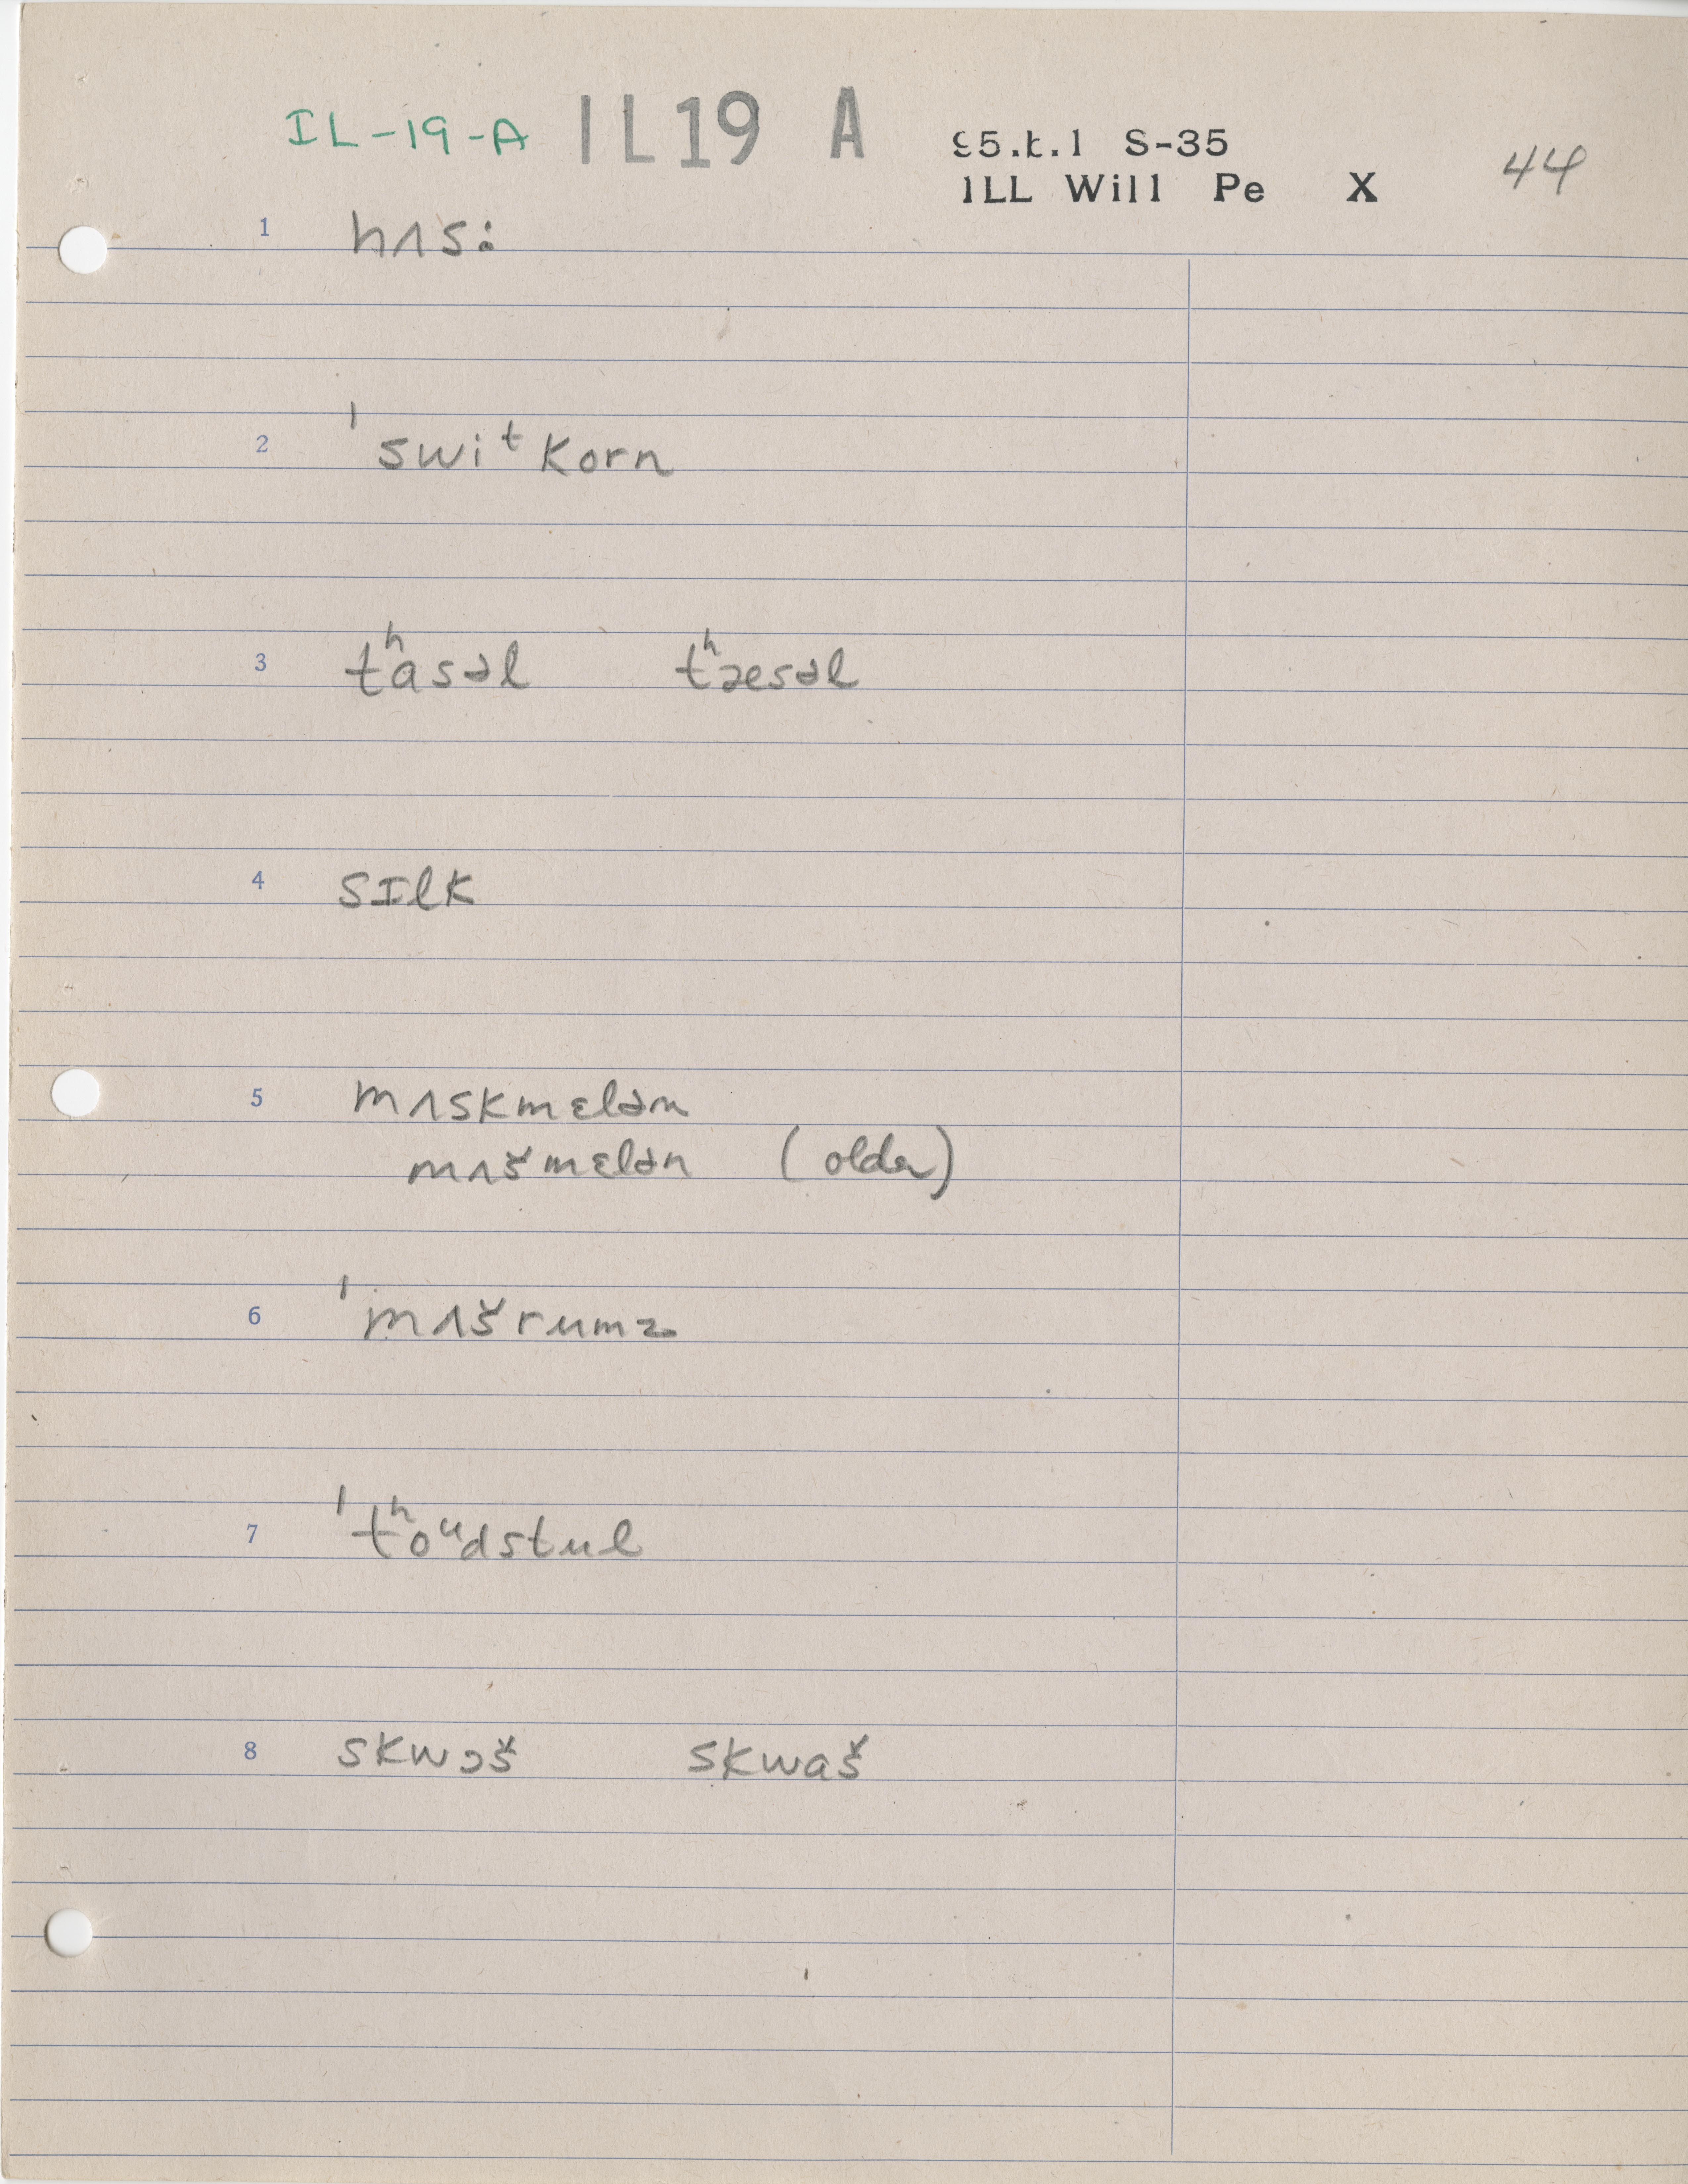 IL-19-A IL19 A 95.t.1 S-35
ILL Will Pe X 44
1 hʌs:
2 ˈswiᵗkorn
3 tʰasəl tʰæsəl
4 sɪlk
5 mʌskmɛlən
mʌšmɛlən (older)
6 ˈmʌšrumz
7 ˈtʰoᵘdstul
8 skwɔš skwaš